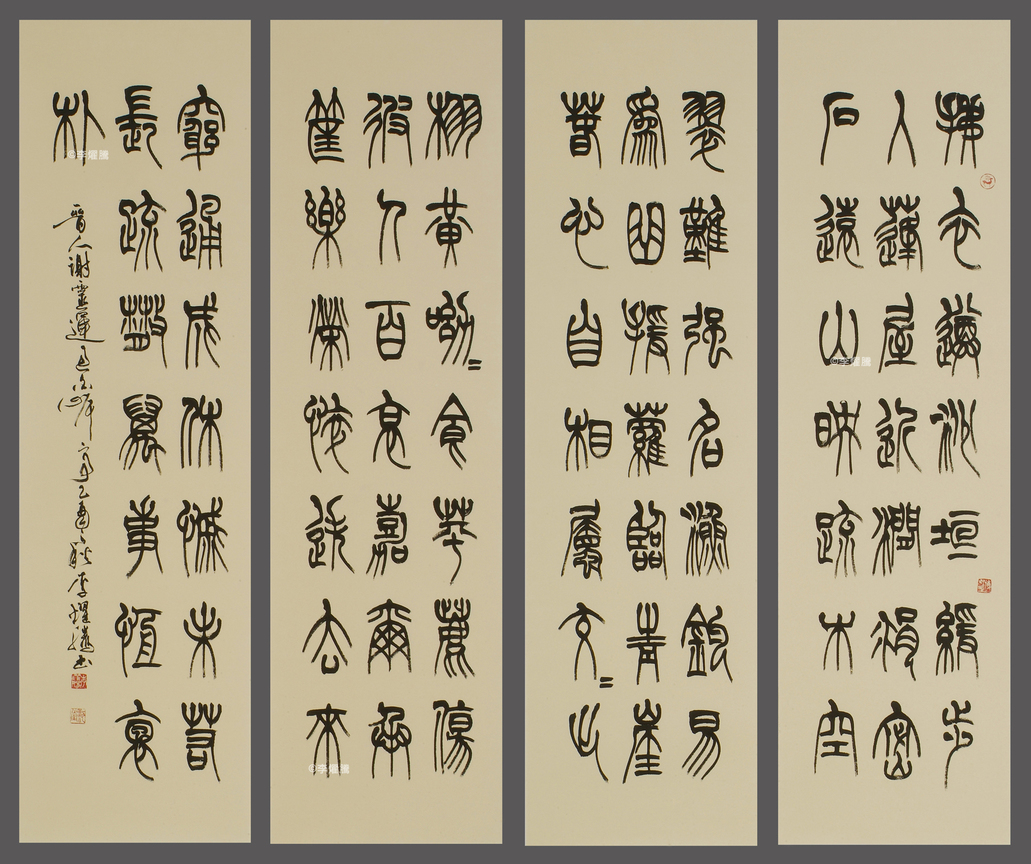 拂衣遵沙垣緩步
入蓬屋近澗涓密
石遠山映疏木空
翠難强名漁釣易
爲曲援蘿臨青崖
春心自相屬交=止
栩黃呦=食苹鹿傷
彼人百哀嘉爾承
筐樂榮悴迭去來
窮通成休慽未若
長疏散萬事恆裦
朴
晉人謝靈運過白岸亭乙酉之秋李燿騰書
©李燿騰
©李燿騰
©李燿騰